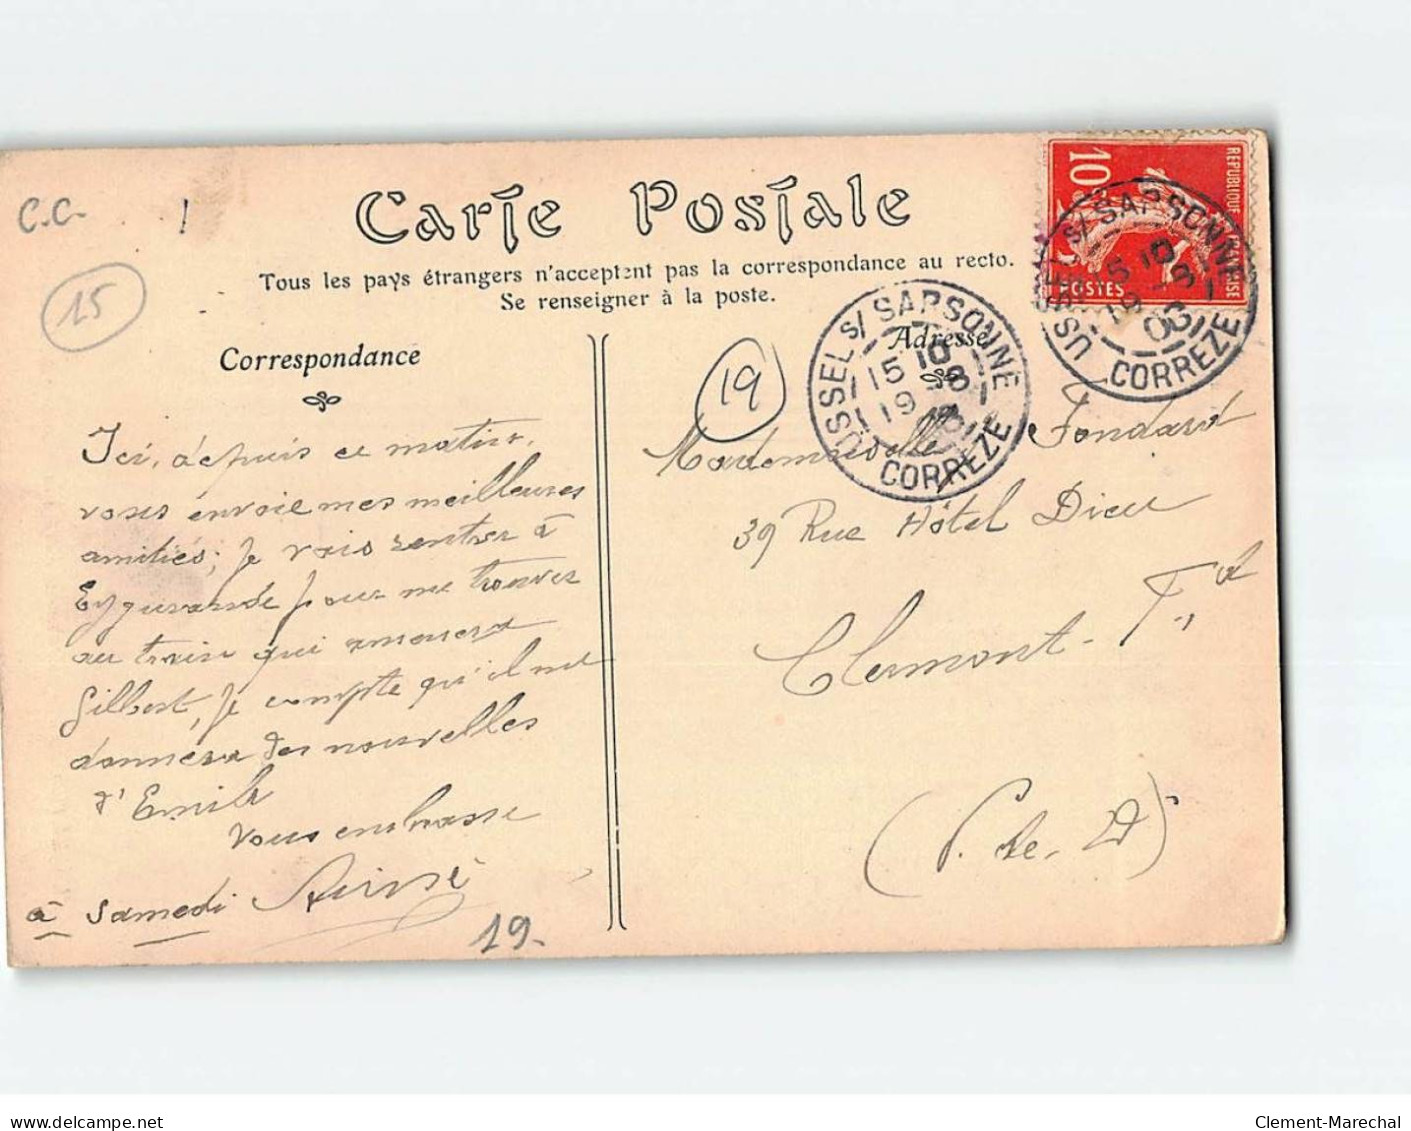 C.C.
15
Carte Postale
Tous les pays étrangers n'acceptent pas la correspondance au recto.
Se renseigner à la poste.
Correspondance
Adresse
19
10
REPUBLIQUE FRANÇAISE
POSTES
USSEL S/ SARSONNE
15 10
19 -8
CORREZE
USSEL S/ SARSONNE
15 10
19 -8
CORREZE
Ici, depuis ce matin,
vous envoie mes meilleures
amitiés; je vais rentrer à
Eygurande pour me trouver
au train qui amènera
Gilbert, je compte qu'il me
donnera des nouvelles
d'Emile
Vous embrasse
à Samedi
19.
Mademoiselle Fondard
39 Rue Hôtel Dieu
Clermont-Fd
(P. de. D)
www.delcampe.net
Clement-Marechal